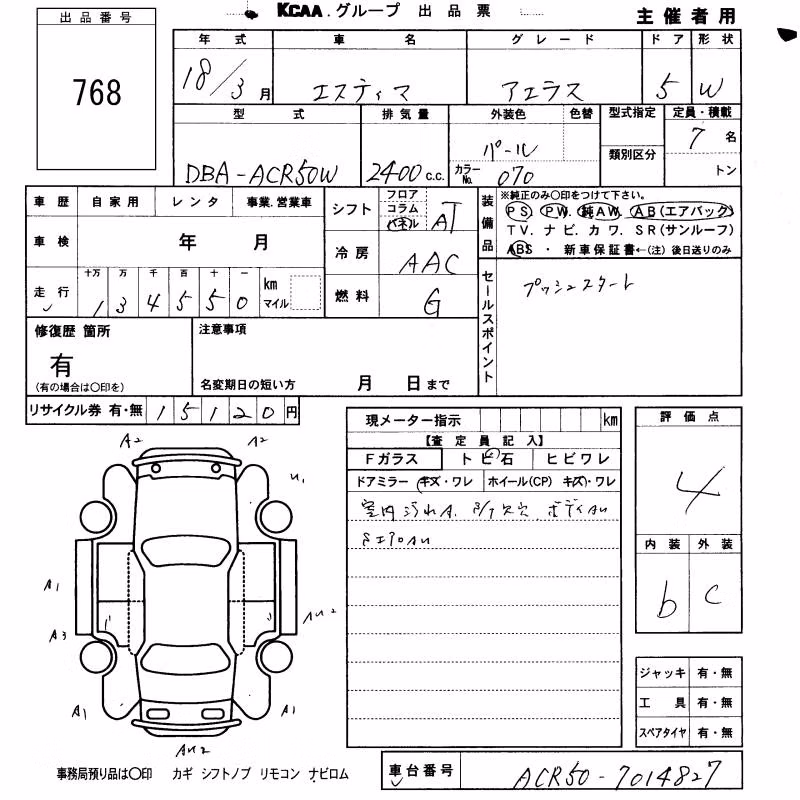 KCAA.グループ 出品票
主催者用
出品番号
768
年式 車名 グレード ドア 形状
18/3月 エスティマ アエラス 5 W
型式 排気量 外装色 色替 型式指定 定員・積載
DBA-ACR50W 2400 c.c. パール カラーNo. 070 類別区分 7名 トン
車歴 自家用 レンタ 事業.営業車
シフト フロア コラム パネル AT
装備品 ※純正のみ〇印をつけて下さい。
PS. PW. 純AW. AB(エアバック)
TV. ナビ. カワ. SR(サンルーフ)
ABS ・ 新車保証書←(注) 後日送りのみ
車検 年 月
冷房 AAC
走行 十万 万 千 百 十 一
1 3 4 5 5 0 km マイル
燃料 G
セールスポイント プッシュスタート
修復歴 箇所
有
(有の場合は〇印を)
注意事項
名変期日の短い方 月 日まで
リサイクル券 有・無 1 5 1 2 0 円
現メーター指示 km
【査定員記入】
Fガラス トビ石 ヒビワレ
ドアミラー (キズ・ワレ ホイール(CP) キズ・ワレ
室内汚れA. ボディAU
評価点
4
内装 外装
b C
A2 A2
U1
A1
A3
AU2
A1 A1
AU2
ジャッキ 有・無
工具 有・無
スペアタイヤ 有・無
事務局預り品は〇印 カギ シフトノブ リモコン ナビロム
車台番号 ACR50-7014827